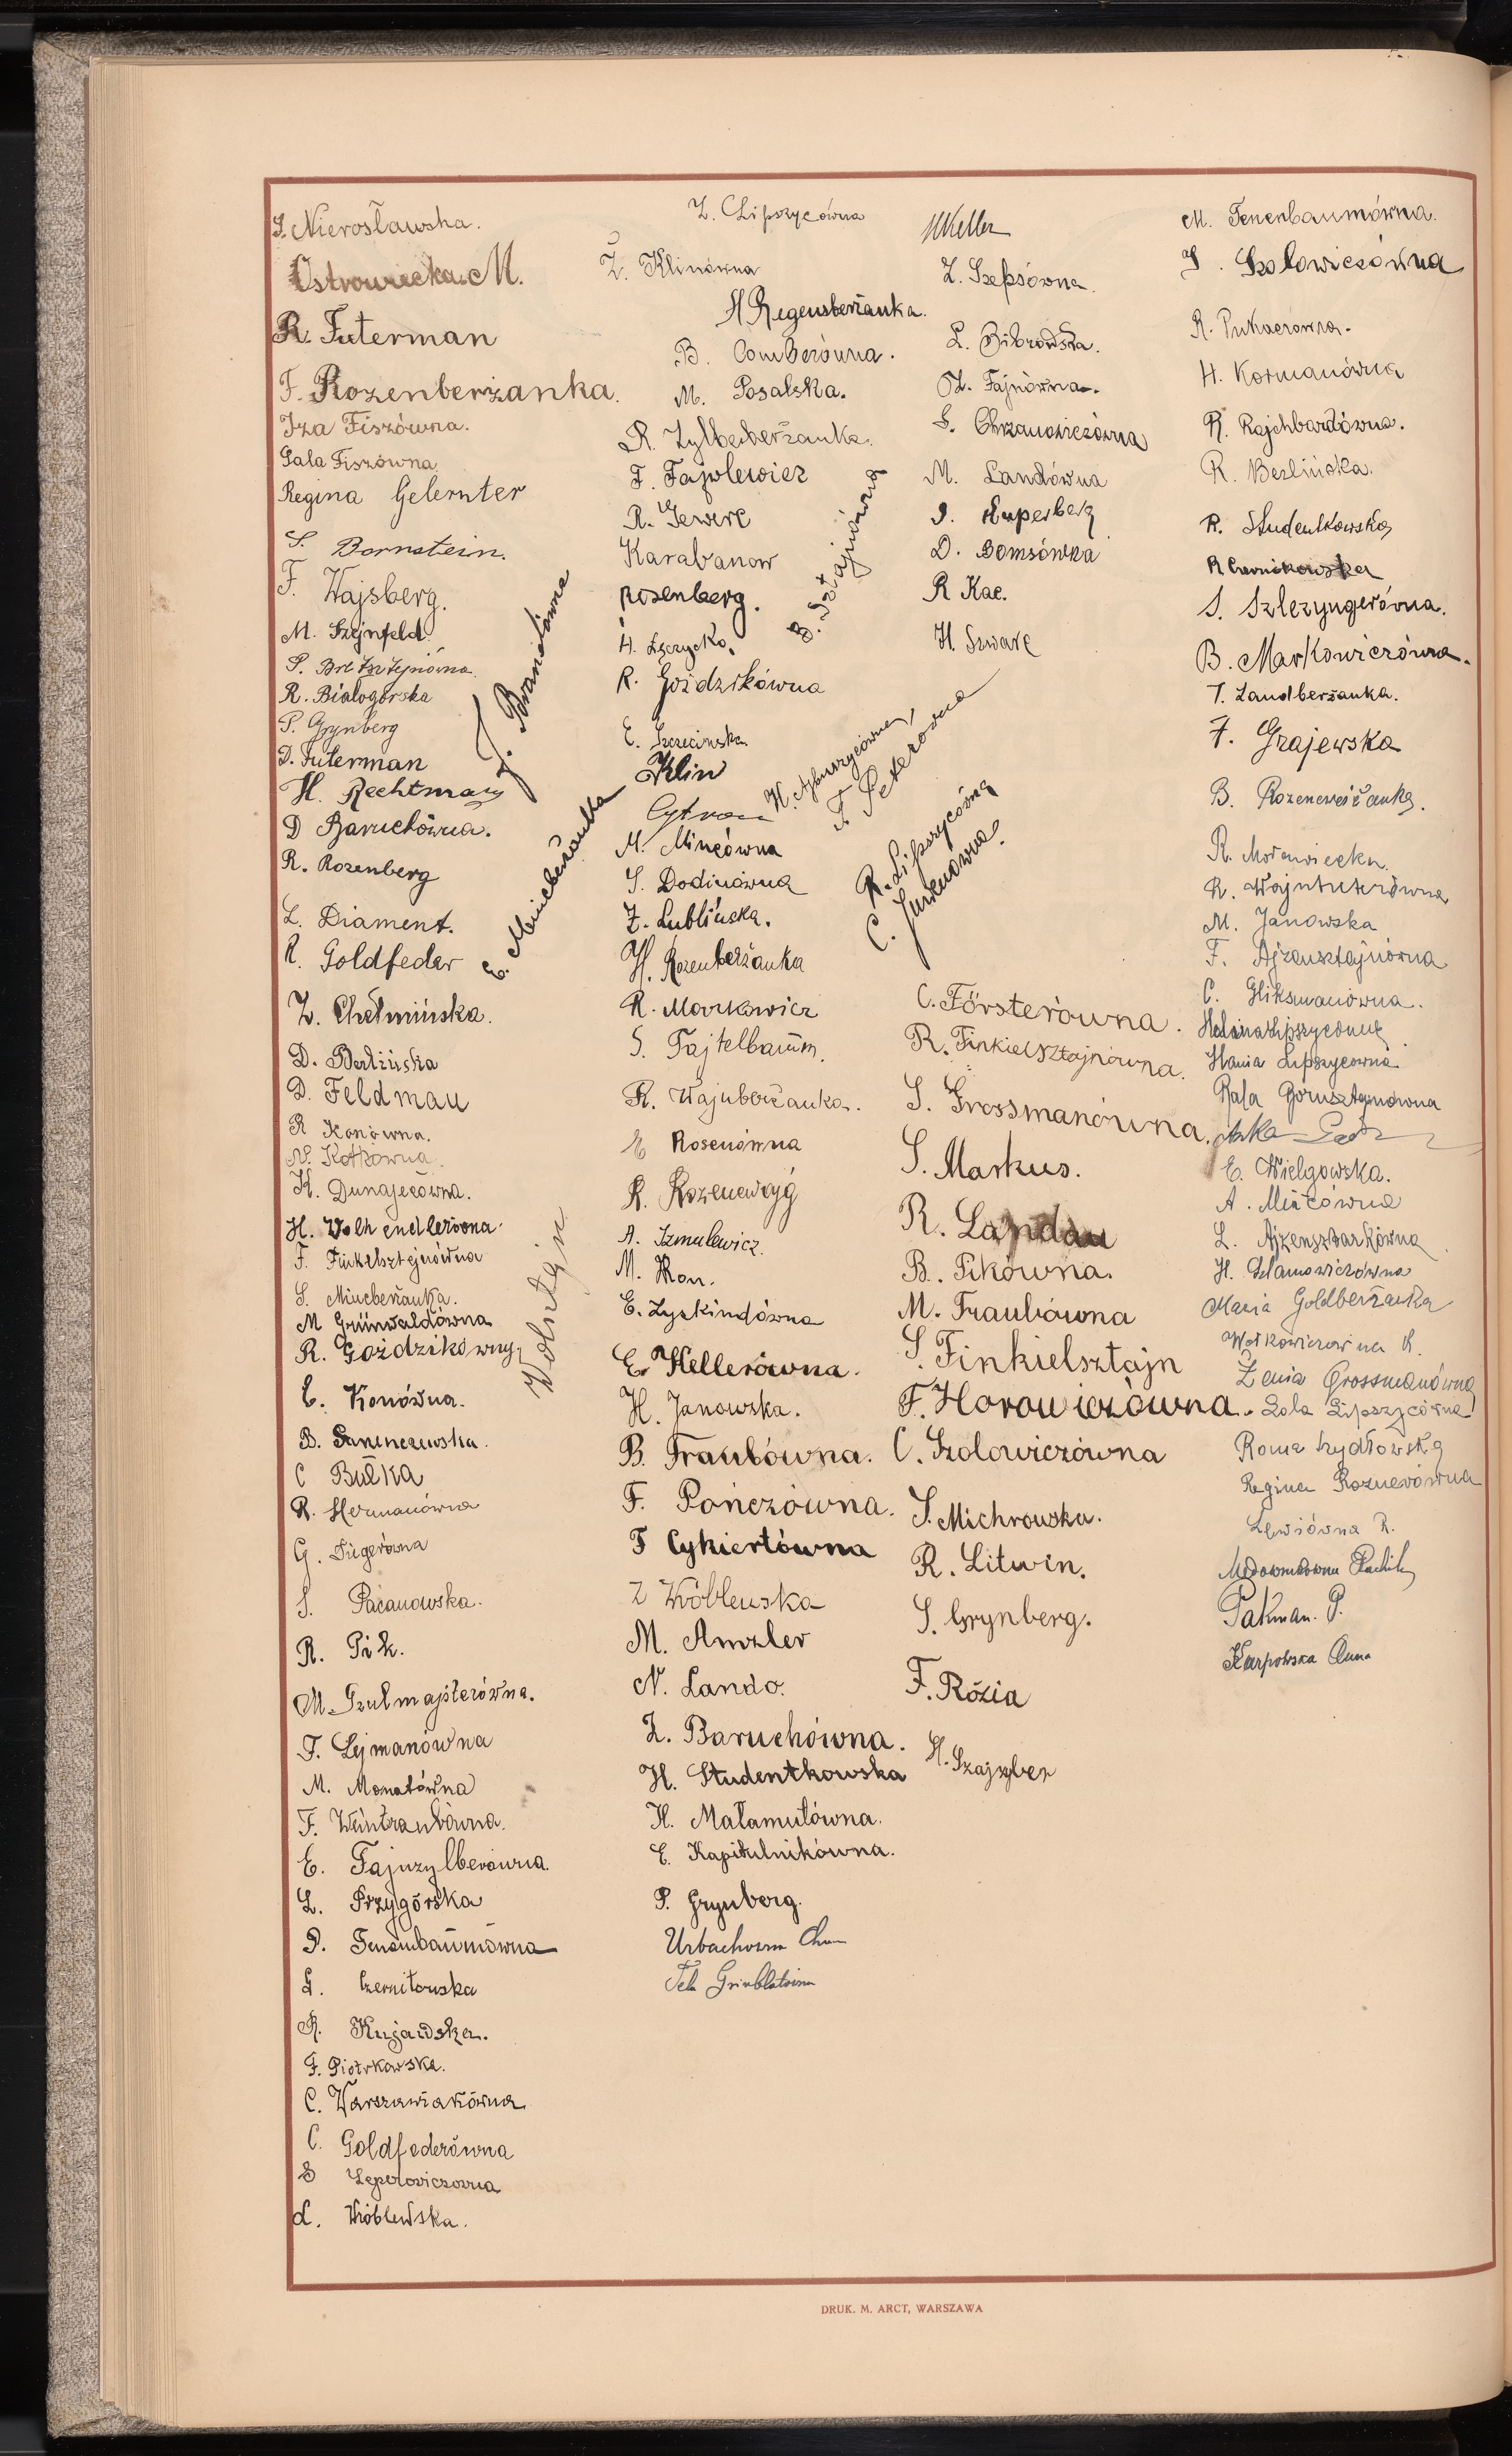 S. Nierosławska.
Ostrowiecka M.
R. Futerman
F. Rozenberżanka.
Iza Fiszówna.
Gala Fiszówna
Regina Gelernter
S. Bornstein.
F. Wajsberg.
M. Szejnfeld.
R. Białogórska
P. Grynberg
D. Futerman
H. Rechtman
D Baruchówna.
R. Rozenberg
L. Diament.
R. Goldfeder
Z. Chełmińska.
D. Berlińska
D. Feldmau
R Konówna.
N. Kotkowna.
H. Dunajecówna.
H.
F. Finkelsztejnówna
S. Mincberżanka.
M Grünwaldówna
R. Goździkówny
E. Konówna.
B.
C Bułka
R. Hermanówna
G. Fügerówna
S. Pacanowska.
R. Pik.
M. Szulmajsterówna.
F. Lejmanówna
M. Monatówna
F. Weintraubówna.
E. Fajnzylberówna.
L. Przygórska
P. Tenenbaumówna
G. Czerniłowska
R. Kujawska.
F. Piotrkowska.
C. Warszawiakówna
C. Goldfederówna
S Leperowiczowna
L. Wróblewska.
J. Bramówna
E. Mincberżanka
Wolsztajn
Z. Lipszycówna
Z. Klinówna
H Regensberżanka.
B. Comberówna.
M. Posalska.
R. Zylberberżanka.
F. Fajwlewicz
R. Gewerc
Karabanow
Rosenberg.
H. Łęczycka.
R. Goździkówna
E. Szczecinska
Klin
Cytron
M. Mincówna
S. Dodinówna
Z. Lublińska.
H. Rozenberżanka
R. Markowicz
S. Fajtelbaum.
R. Wajnberżanka.
E Rosenówna
R. Rozencwajg
A. Szmulewicz.
M. Kon.
E. Zyskindówna
E. Hellerówna.
H. Janowska.
B. Traubówna.
F. Pończówna.
F Cykiertówna
Z Wróblewska
M. Amzler
N. Lando.
Z. Baruchówna.
H. Studentkowska
H. Małamutówna.
E. Kapitulnikówna.
P. Grynberg.
Fela Grinblatówna
F. Peterówna
R. Lipszycówna
C. Jurenówna.
Keller
Z. Szepsówna.
L. Bibrowska.
Z. Fajnówna.
S. Chrzanowiczówna
M. Landówna
J. Kuperberg
D. Bomsówka
R Kac.
H. Szwarc
C. Försterówna.
R. Finkielsztajnówna.
S. Grossmanówna.
S. Markus.
R. Landau
B. Pikówna.
M. Traubówna
S. Finkielsztajn
F. Horowiczówna.
C. Szolowiczówna
S. Michrowska.
R. Litwin.
S. Grynberg.
F. Rózia
H. Szajzyber
M. Tenenbaumówna.
J. Szolowiczówna
R. Pukaczówna.
H. Kormanówna
R. Rajchbardówna.
R. Berlińska.
R. Studentkowska
S. Szlezyngerówna.
B. Markowiczówna.
T. Landberżanka.
F. Grajewska
B. Rozencwajżanka.
R. Morawiecka.
R. Wajntuterówna
M. Janowska
F. Ajzensztajnówna
C. Gliksmanówna.
Halina Lipszycówna
Hania Lipszycówna
Rala Bornsztajnówna
E. Wielgowska.
A. Miłcówna
L. Ajzensztarkówna
H. Adamowiczówna
Maria Goldberżanka
Wołkowiczowina R.
Zenia Grossmanówna
Lola Lipszycówna
Roma Szydłowska
Regina Roznerówna
Lewiówna R.
Pakman. P.
Karpowska Anna
DRUK. M. ARCT, WARSZAWA